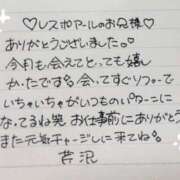 ♡レスポアールのお兄様♡
ありがとうございました。♡
今月も会えてとっても嬉し
かったです♨会ってすぐソファーで
いちゃいちゃがいつものパターンに
なってるね笑 お仕事前にありがとう
また元気チャージしに来てね♨
芹沢